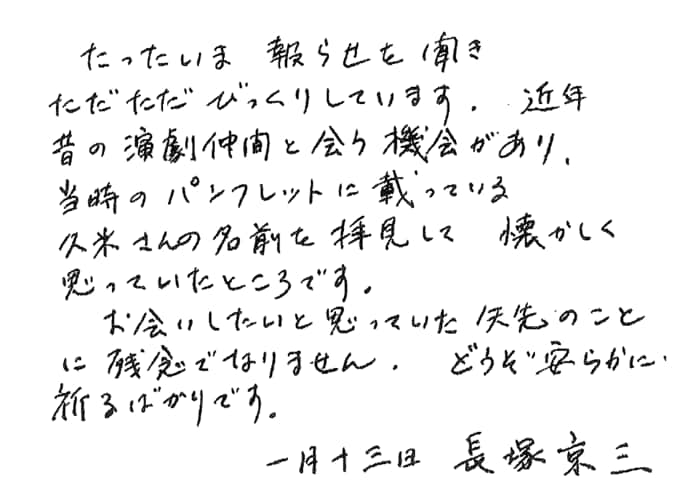 たったいま 報らせを聞き
ただただびっくりしています. 近年
昔の演劇仲間と会う機会があり、
当時のパンフレットに載っている
久米さんの名前を拝見して 懐かしく
思っていたところです。
お会いしたいと思っていた矢先のこと
に残念でなりません. どうぞ安らかに.
祈るばかりです。
一月十三日 長塚京三